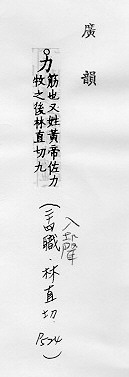 廣韻
力筋也又姓黃帝佐力
牧之後林直切九
入聲
(二十四職·林直切 P.524)